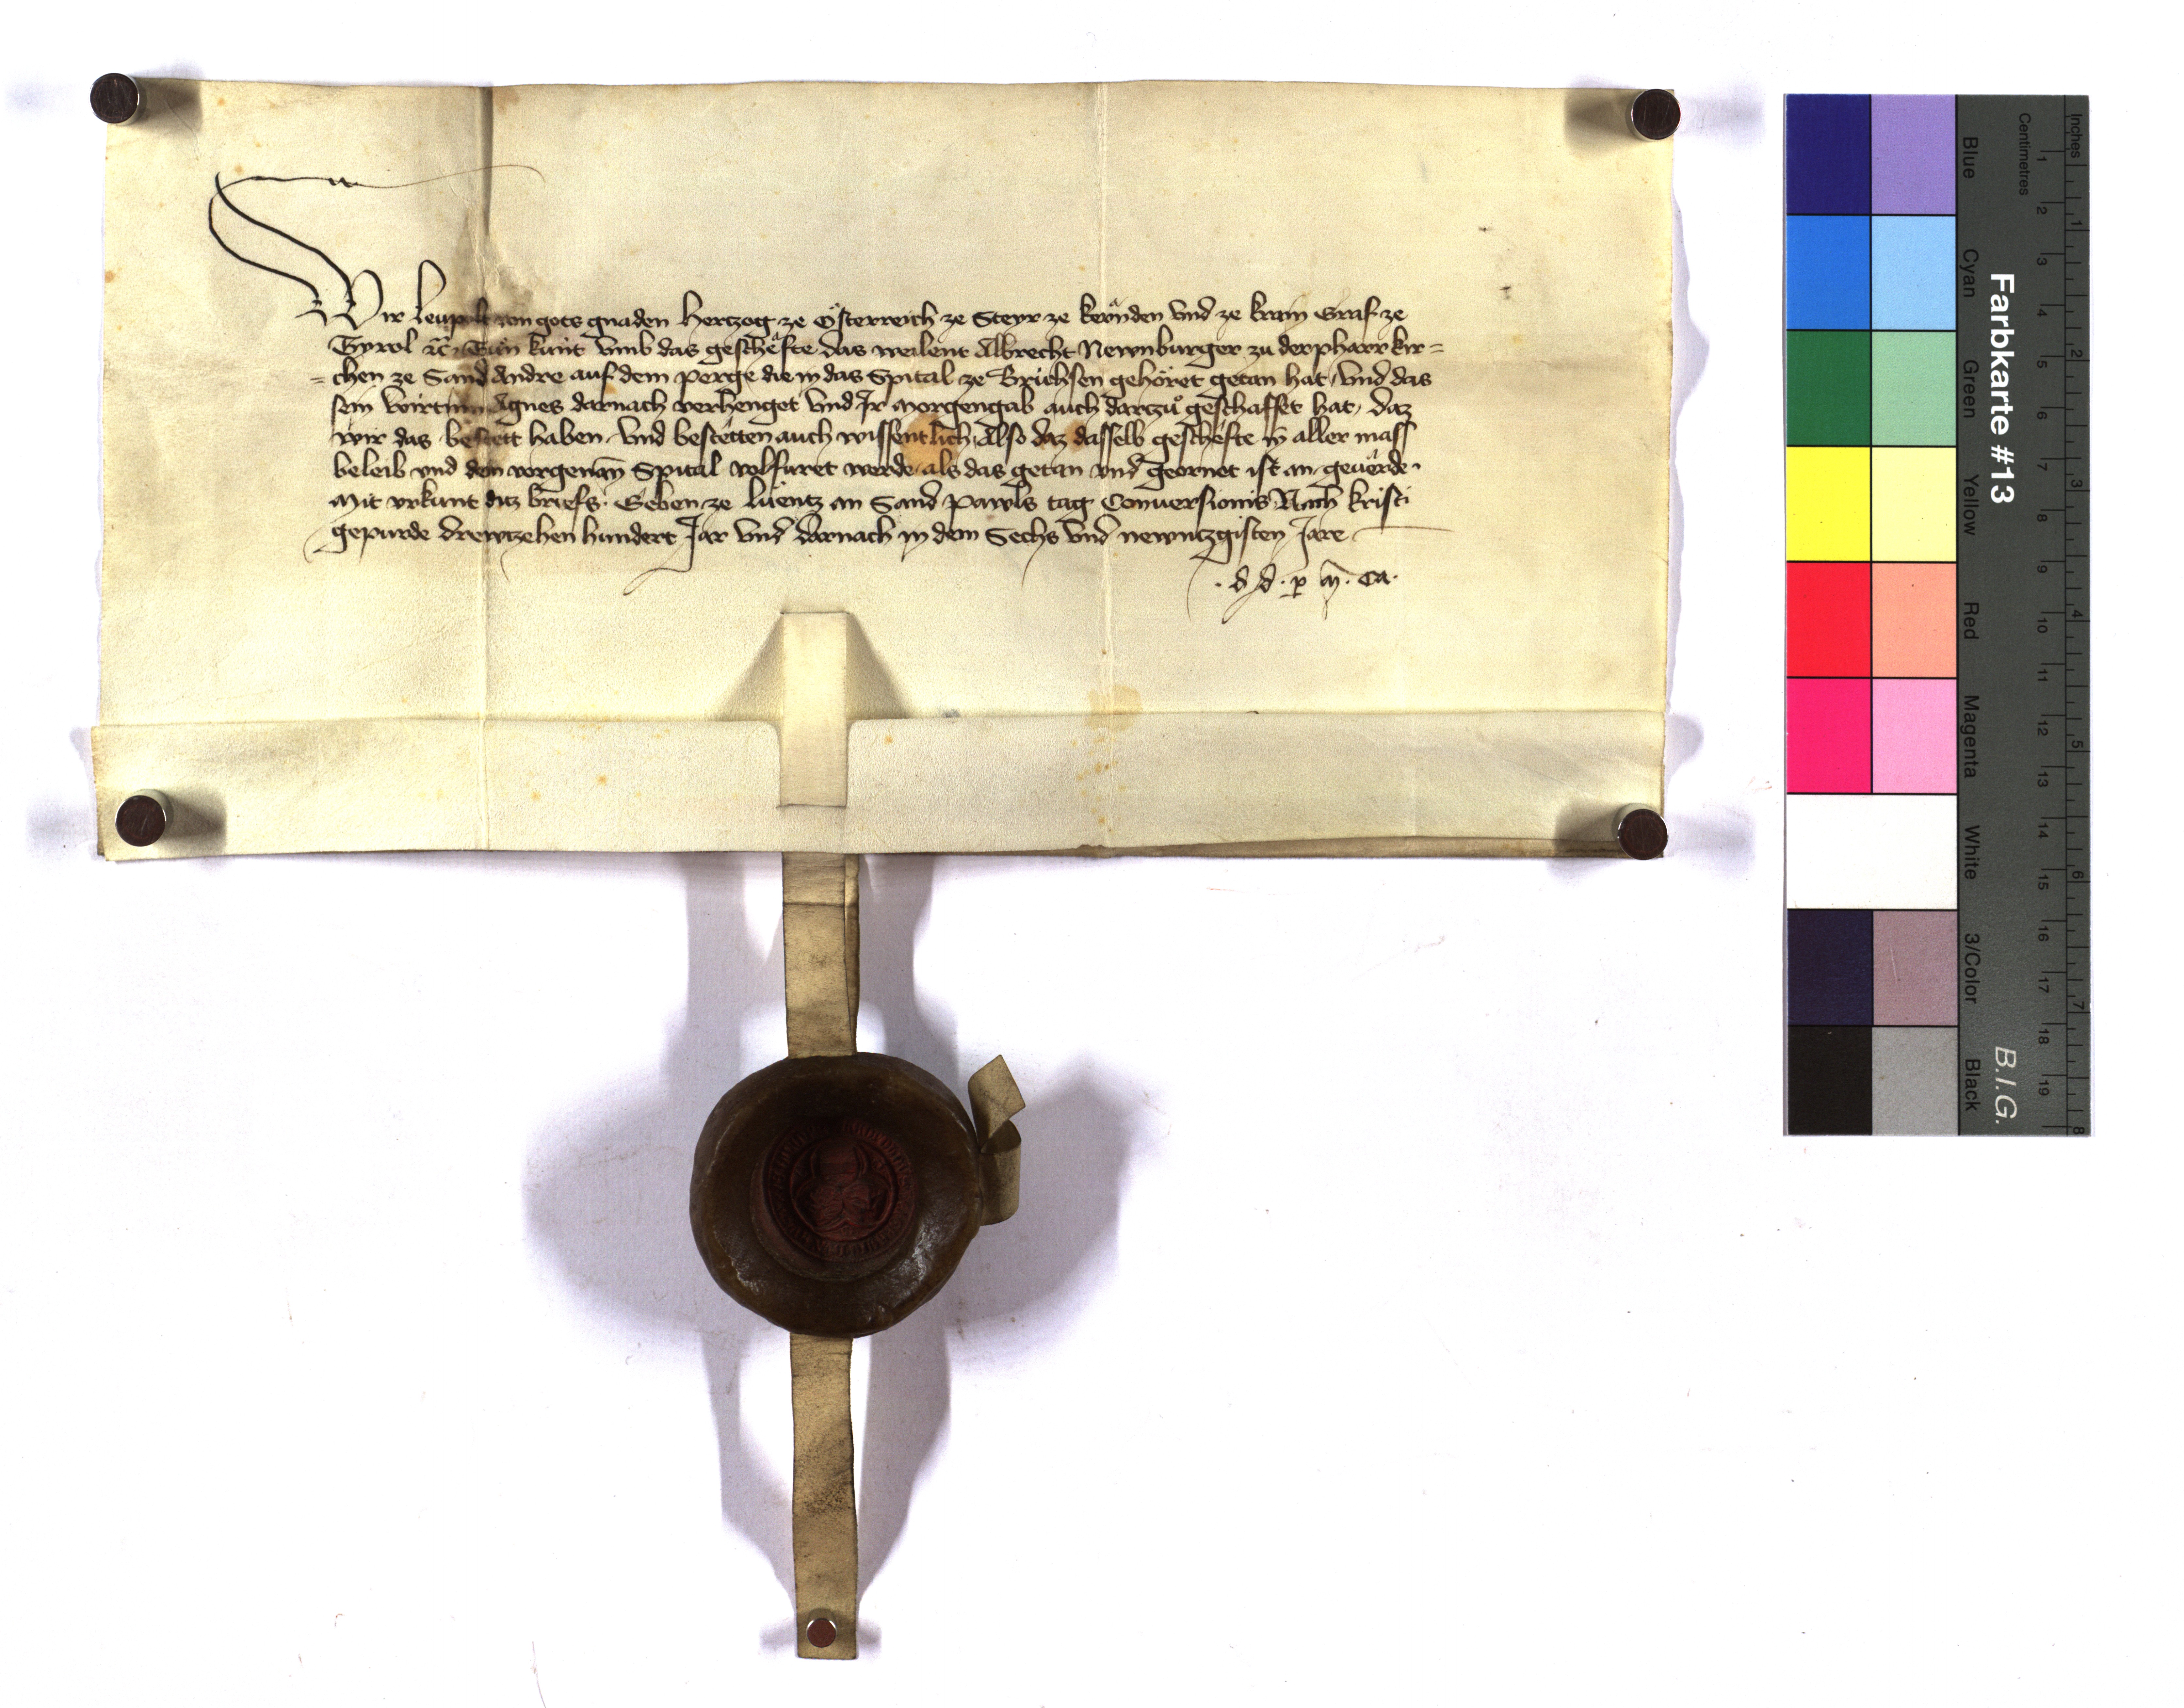 Wir Leupolt von gots gnaden Hertzog ze Österreich ze Steyr ze Kernden vnd ze Krain Graf ze
Tyrol etc. Tun kunt vmb das geschefte das weilent Albrecht Newnburger zu der pharrkir=
=chen ze Sand Andre auf dem perge die in das Spital ze Brichsen gehöret getan hat, vnd das
sein wirtinn Agnes darnach verhenget vnd Ir morgengab auch dartzů geschaffet hat, daz
wir das bestett haben vnd bestetten auch wissentlich, Also daz dasselb gescheffte in aller mass
beleib vnd dem vorgenan̄ Spital volfuret werde, als das getan vnd geornet ist an geuerde.
Mit vrkunt ditz briefs. Geben ze Lüentz an Sand Pawls tag Conuersionis Nach kristi
gepurde drewtzehen hundert Jar vnd darnach in dem Sechs vnd newntzgisten Jare
. d. d. p m. Ca.
Farbkarte #13
B.I.G.
Inches 1 2 3 4 5 6 7 8
Centimetres 1 2 3 4 5 6 7 8 9 10 11 12 13 14 15 16 17 18 19
Blue Cyan Green Yellow Red Magenta White 3/Color Black